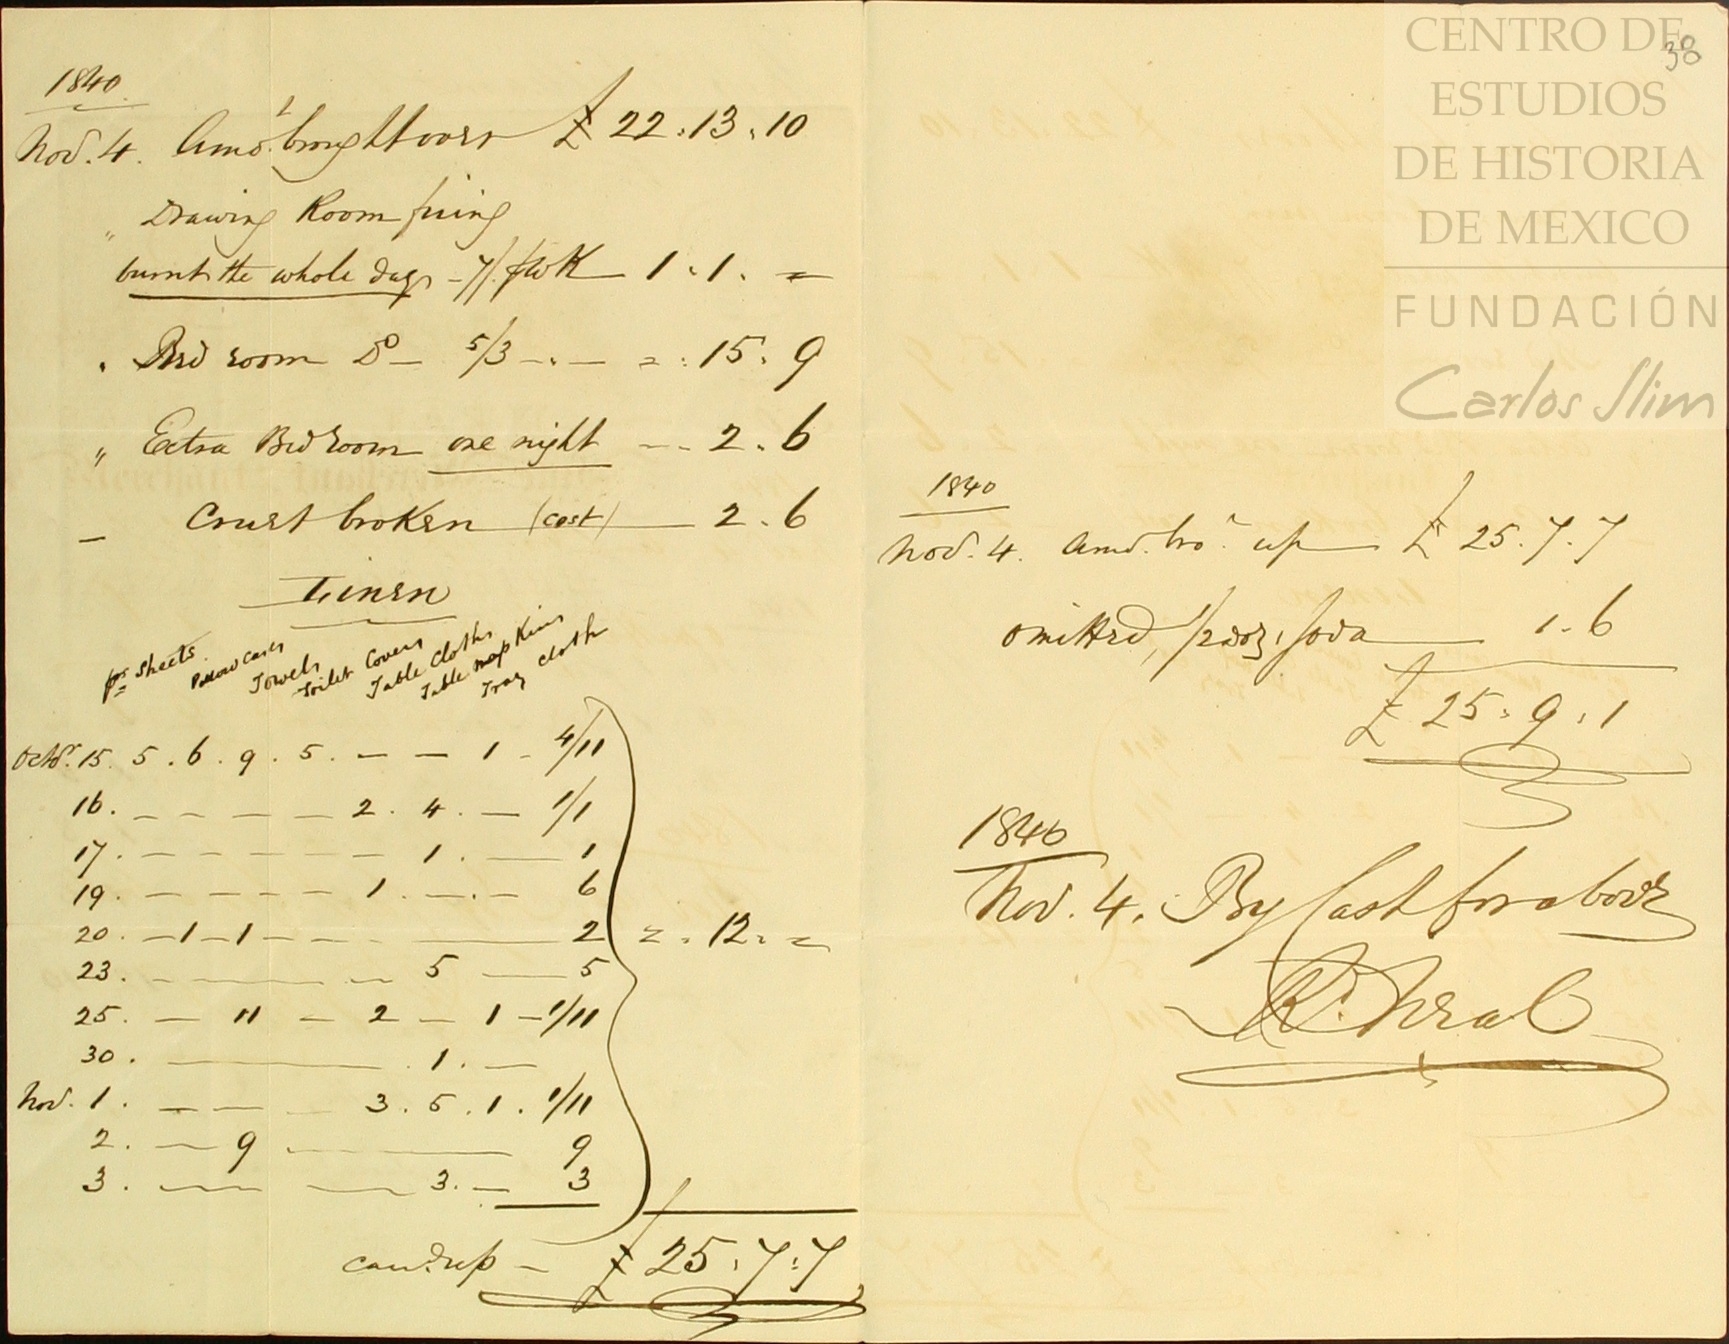 1840
Nov. 4. Amot. brought over £ 22 . 13 . 10
" Drawing Room firing
burnt the whole day - 7/. pr WK 1 . 1 . =
" Bed room Do — 5/3 — . — = . 15 . 9
" Extra Bed Room one night — — 2 . 6
— Cruet broken (cost) — 2 . 6
Linen
prs sheets
Pillow cases
Towels
Toilet Covers
Table Cloths
Table napKins
Tray cloth
Octbr. 15. 5 . 6 . 9 . 5 . — — 1 - 4/11
16. — — — — 2 . 4 . — 1/1
17. — — — — — 1 . — 1
19. — — — — 1 . — . — 6
20. — 1 — 1 — — — 2 = . 12 . =
23. — — — 5 — 5
25. — 11 — 2 — 1 — 1/11
30. — . 1 . —
Nov. 1. — — — 3 . 5 . 1 . 1/11
2. — 9 — 9
3. — — — 3. — 3
card. up — £ 25 . 7 . 7
1840
Nov. 4. Amt. bro. up — £ 25 . 7 . 7
omitted, 1/2 doz. Soda — 1 . 6
£ 25 . 9 . 1
1840
Nov. 4. By Cash for above
38
CENTRO DE
ESTUDIOS
DE HISTORIA
DE MEXICO
FUNDACIÓN
Carlos Slim